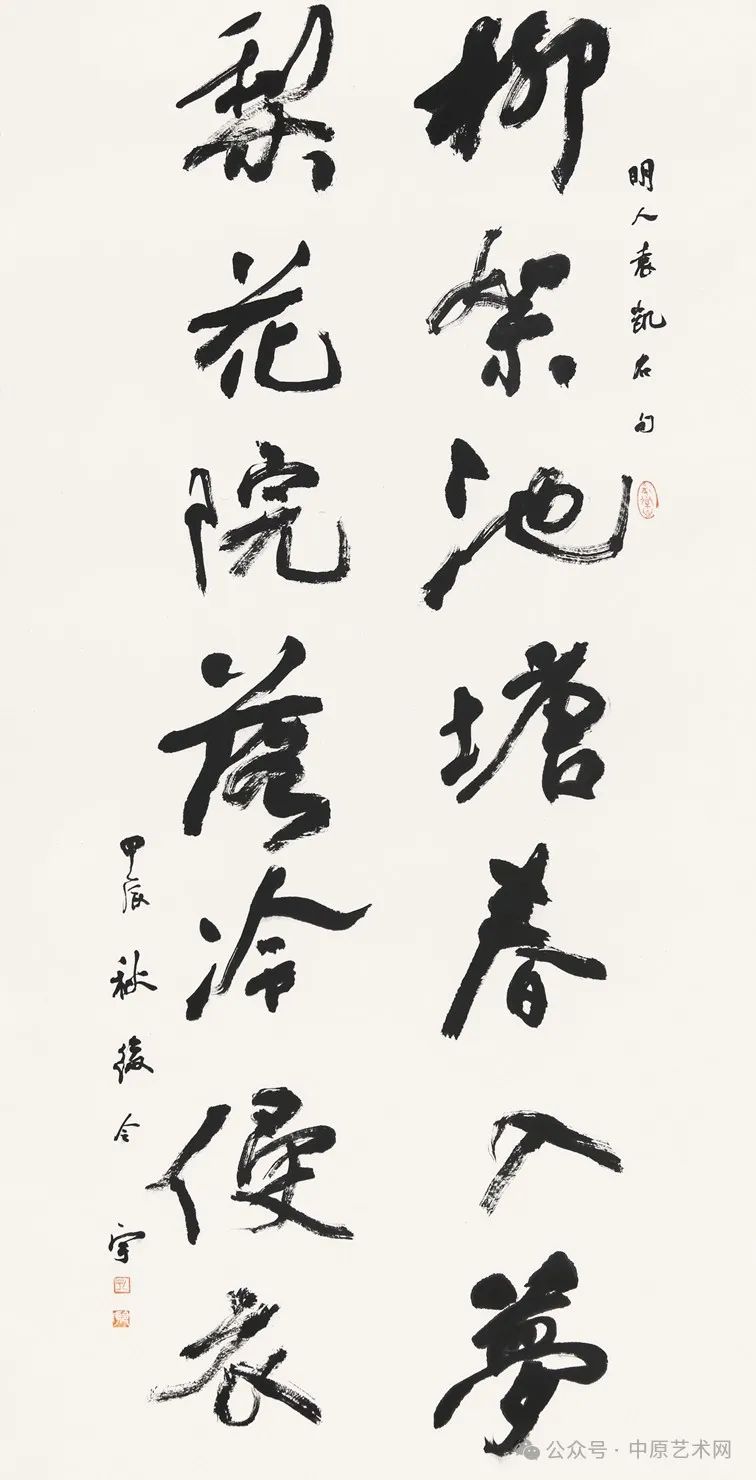 明人袁凱名句
柳絮池塘春入夢
梨花院落冷侵衣
甲辰秋
公众号·中原艺术网